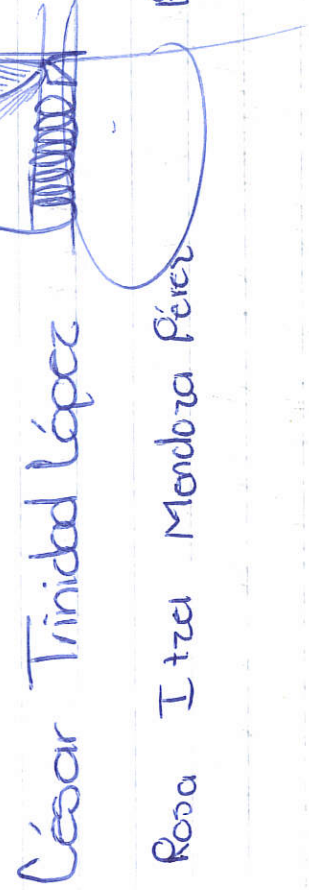 César Trinidad López
Rosa Itzel Mendoza Pérez